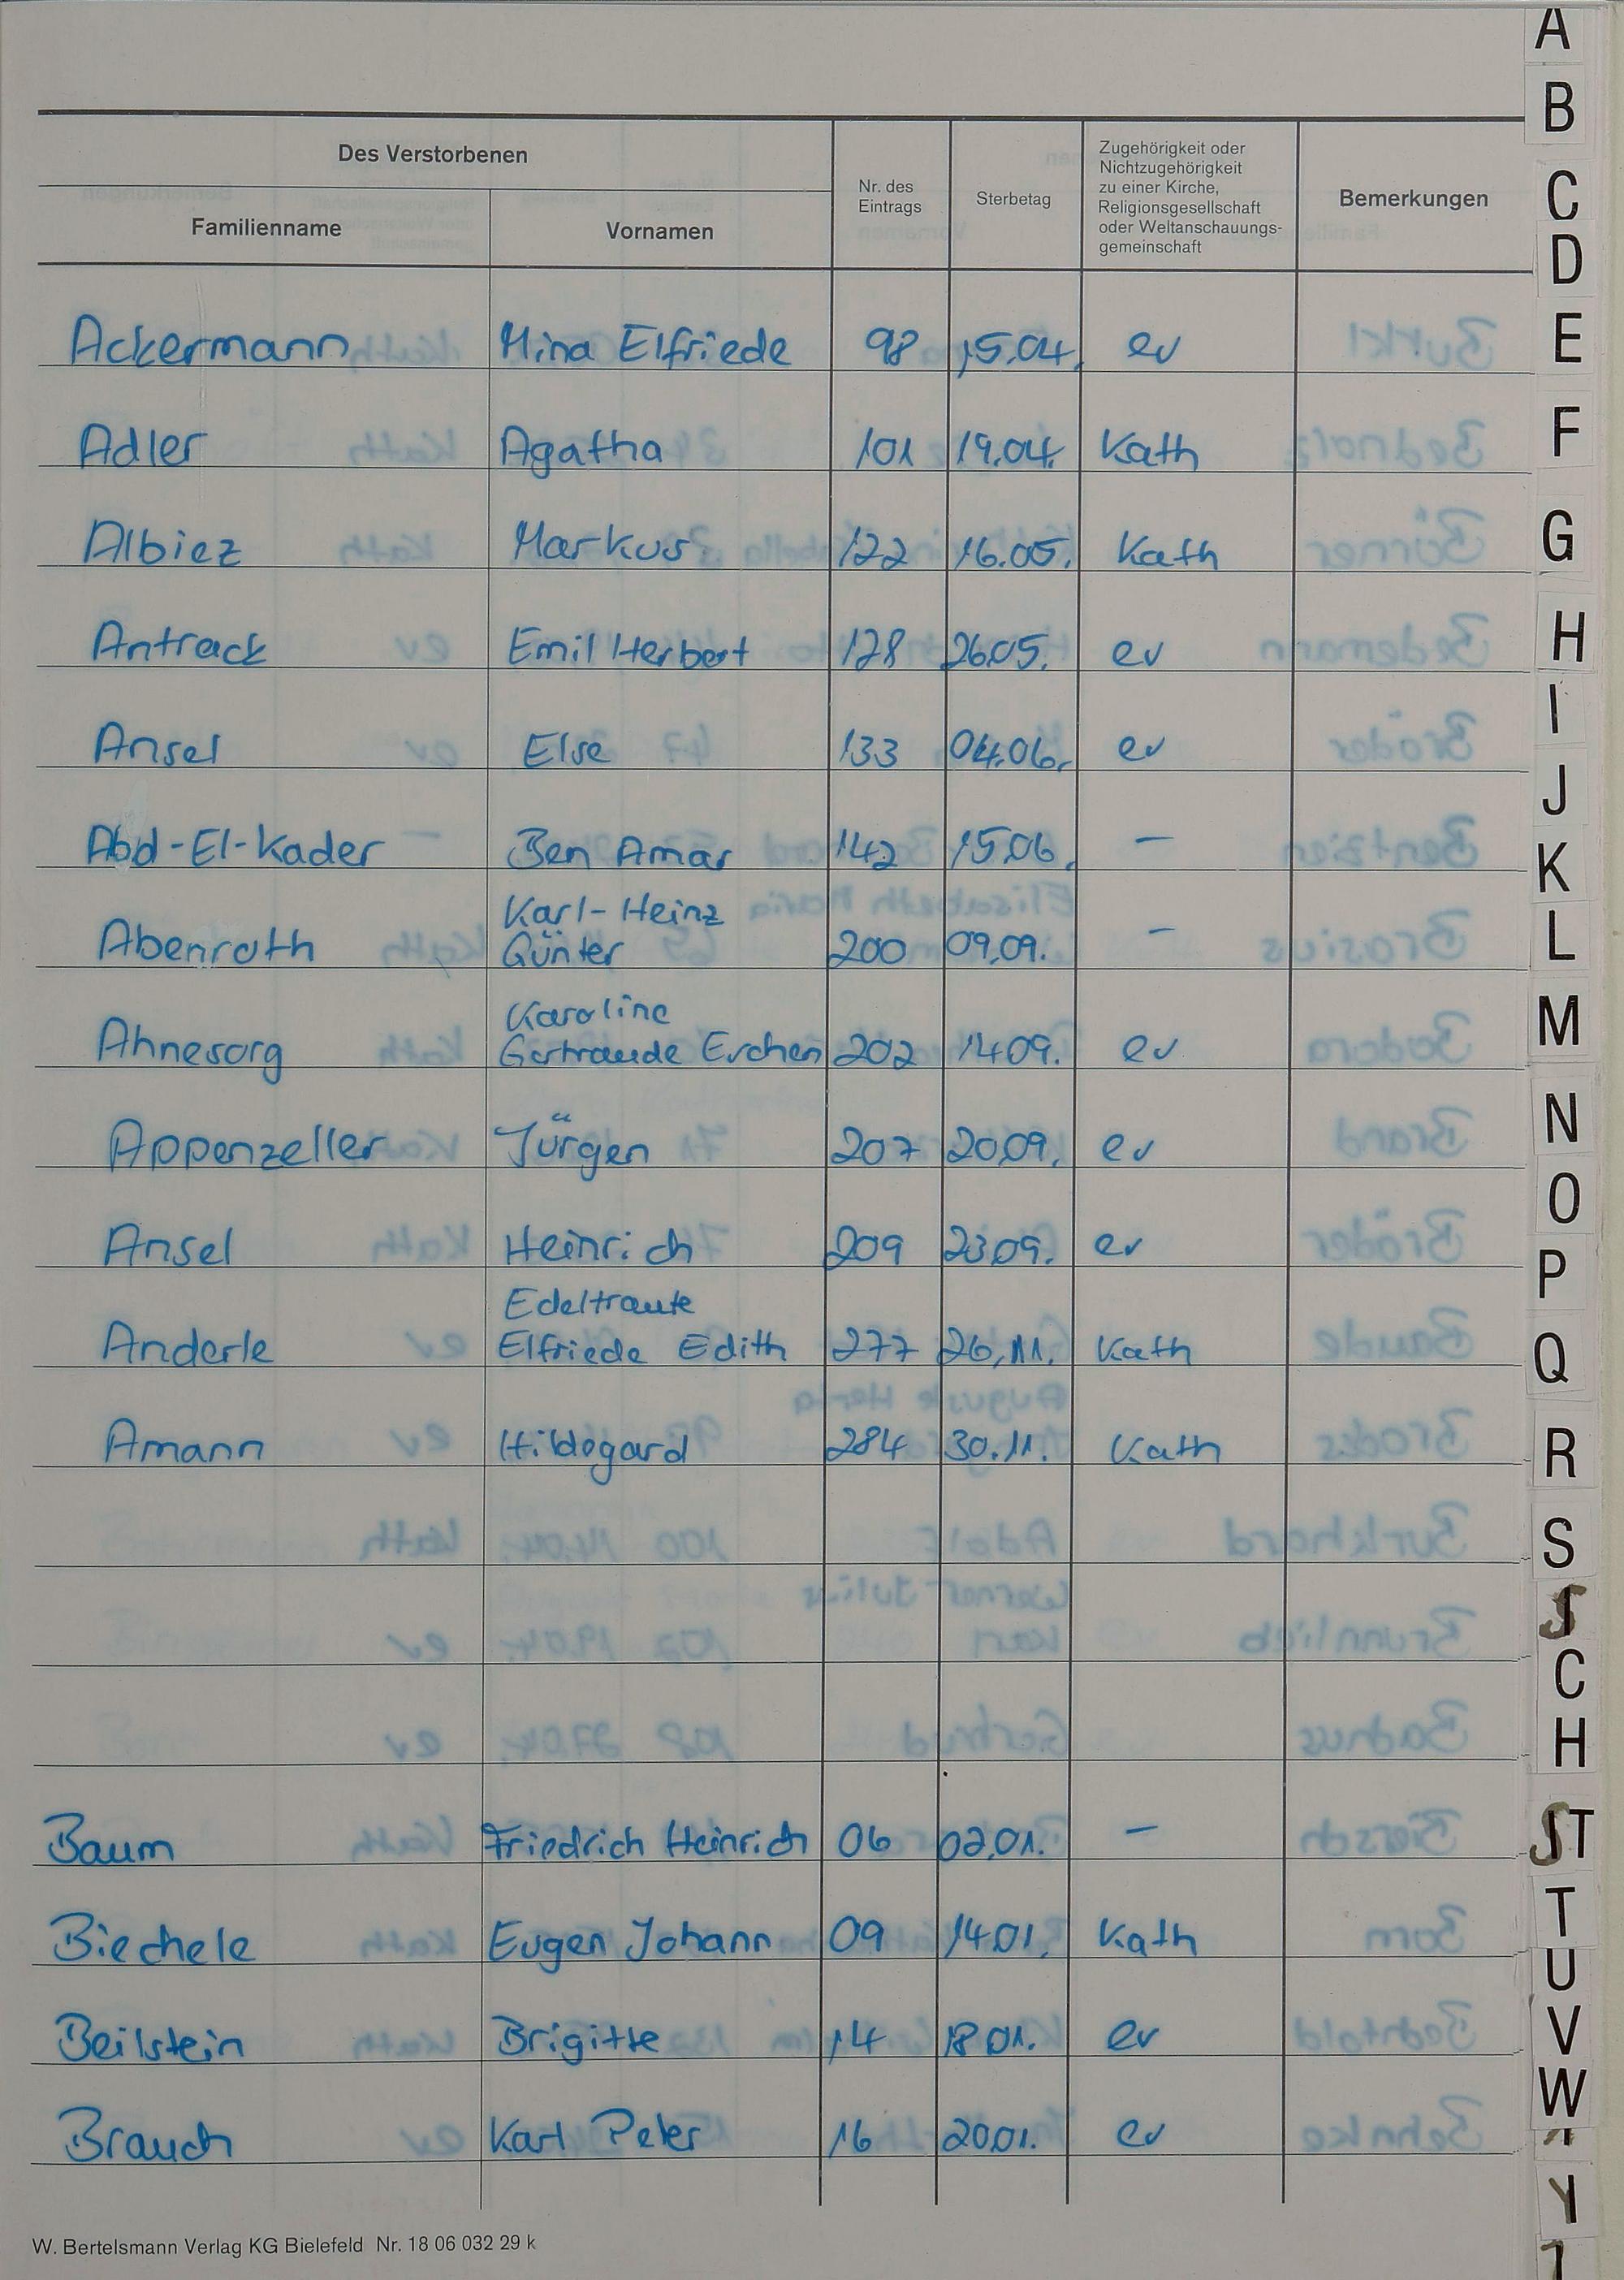 Des Verstorbenen
Familienname Vornamen Nr. des Eintrags Sterbetag Zugehörigkeit oder Nichtzugehörigkeit zu einer Kirche, Religionsgesellschaft oder Weltanschauungs-gemeinschaft Bemerkungen
Ackermann Mina Elfriede 98 15.04. ev
Adler Agatha 101 19.04. Kath
Albiez Markus 122 16.05. Kath
Antrack Emil Herbert 128 26.05. ev
Ansel Else 133 04.06. ev
Abd-El-Kader Ben Amar 142 15.06. –
Karl-Heinz
Abenroth Günter 200 09.09. –
Karoline
Ahnesorg Gertraude Evchen 202 14.09. ev
Appenzeller Jürgen 207 20.09. ev
Ansel Heinrich 209 23.09. ev
Edeltraute
Anderle Elfriede Edith 277 26.11. Kath
Amann Hildegard 284 30.11. Kath
Baum Friedrich Heinrich 06 02.01. –
Biechele Eugen Johann 09 14.01. Kath
Beilstein Brigitte 14 18.01. ev
Brauch Karl Peter 16 20.01. ev
W. Bertelsmann Verlag KG Bielefeld Nr. 18 06 032 29 k
A
B
C
D
E
F
G
H
I
J
K
L
M
N
O
P
Q
R
S
S
C
H
ST
T
U
V
W
Y